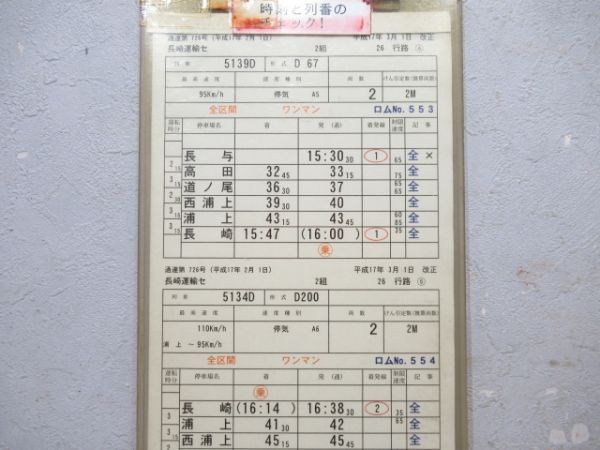 時刻と列番の
チェック!
達第 726号 (平成17年 2月 1日) 平成17年 3月 1日 改正
長崎運輸セ 2組 26 行路 ④
列車 5139D 形式 D 67
最高速度 速度種別 両数 けん引定数(換算両数)
95Km/h 停気 A5 2 2M
全区間 ワンマン ロムNo.553
運転時分 停車場名 着 発(通) 着発線 制限速度 記事
長与 15:30 30 1 65 全 ×
2 15 高田 32 45 33 15 75 全
3 15 道ノ尾 36 30 37 65 全
2 30 西浦上 39 30 40 65 全
3 15 浦上 43 15 43 45 60 85 全
長崎 15:47 (16:00) 1 35 全
乗
通達第 726号 (平成17年 2月 1日) 平成17年 3月 1日 改正
長崎運輸セ 2組 26 行路 ⑤
列車 5134D 形式 D200
最高速度 速度種別 両数 けん引定数(換算両数)
110Km/h 停気 A6 2 2M
浦上 ~95Km/h
全区間 ワンマン ロムNo.554
運転時分 停車場名 着 発(通) 着発線 制限速度 記事
乗
長崎 (16:14) 16:38 30 2 35 全
3 浦上 41 30 42 65 全
3 15 西浦上 45 15 45 45 全